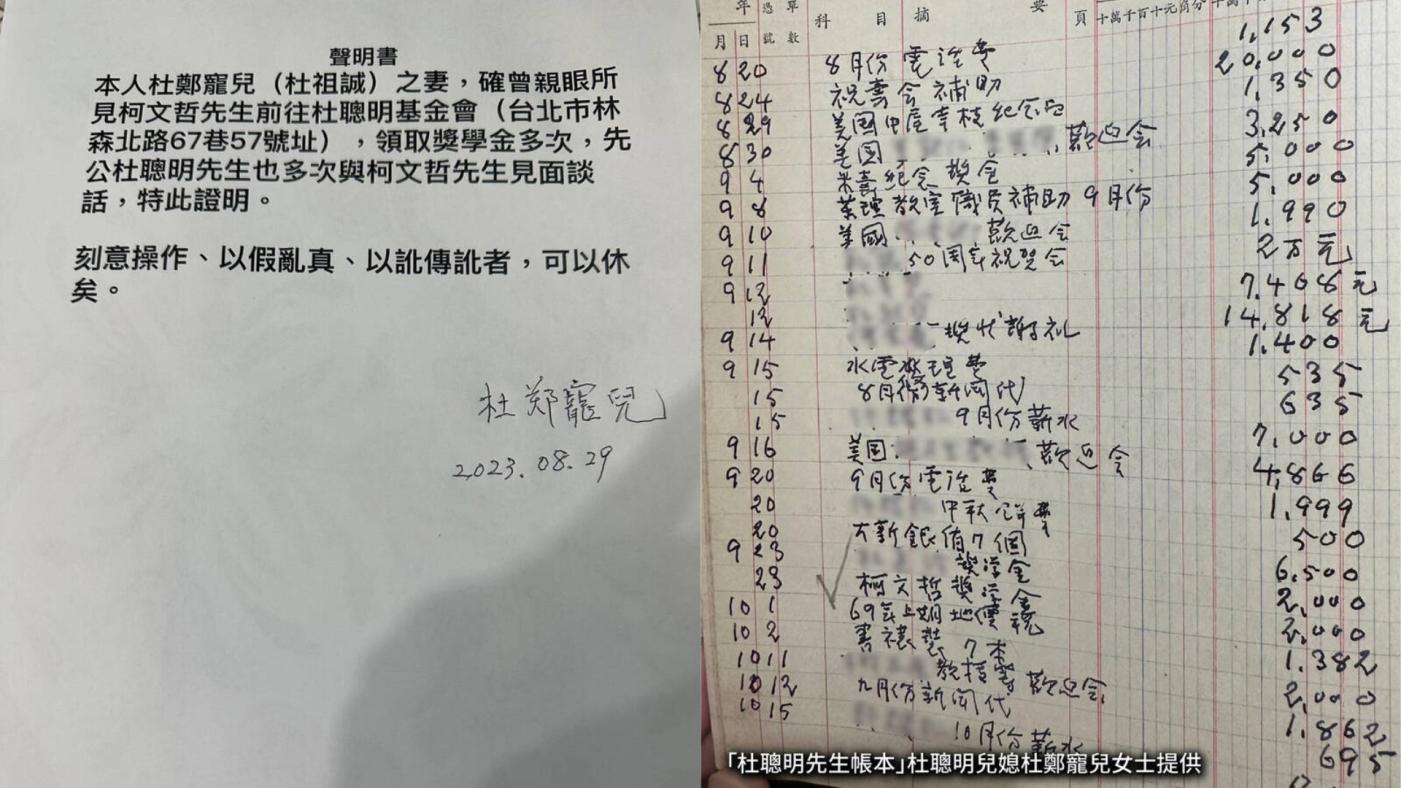 聲明書
本人杜鄭寵兒（杜祖誠）之妻，確曾親眼所
見柯文哲先生前往杜聰明基金會（台北市林
森北路67巷57號址），領取獎學金多次，先
公杜聰明先生也多次與柯文哲先生見面談
話，特此證明。
刻意操作、以假亂真、以訛傳訛者，可以休
矣。
杜郑寵兒
2023.08.29
年 憑單 科 目 摘 要 頁 十萬千百十元角分
月 日 號數
1,153
8 20 8月份電話費 20,000
8 24 祝壽会補助 1,350
8 29 美国 紀念 3,250
8 30 美国 歡迎会 5,000
9 4 米壽紀念奨金 5,000
9 8 薬理教室職員補助 9月份 1,990
9 10 美國 歡迎会 2万元
9 11 50周年祝賀会 7,468元
9 12 14,818元
12 1,400
9 14 奨状謝礼
9 15 水電 費 535
15 8月份新闻代 635
15 9月份薪水 7,000
9 16 美国 歡迎会 4,866
9 20 9月份電话費 1,999
20 中秋 費 500
20 大新銀 7個 6,500
9 23 奨学金 2,000
23 柯文哲奨学金 2,000
10 1 69年上期地價稅 1.382
10 2 書 裝 7本 2,000
10 11 教授 歡迎会 1.862
10 12 九月份新闻代 695
10 15 10月份薪水
「杜聰明先生帳本」杜聰明兒媳杜鄭寵兒女士提供